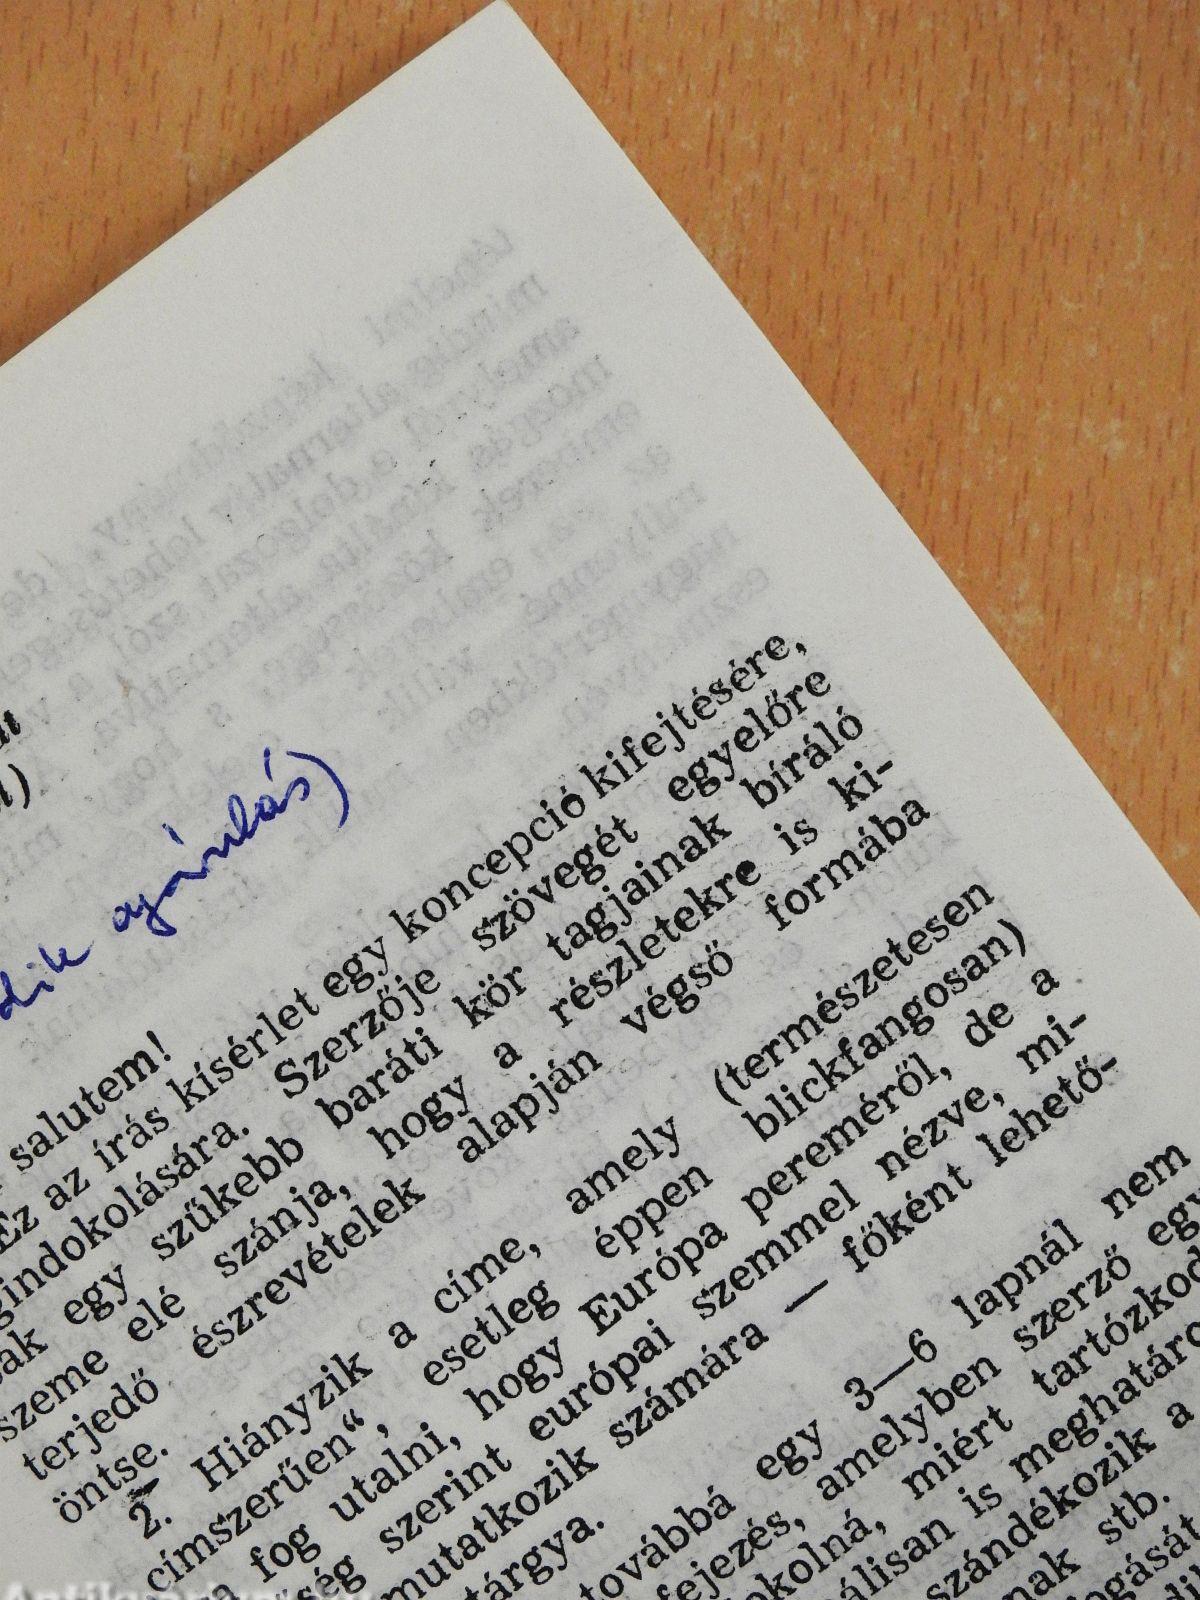 ajánlás)
salutem!
Ez az írás kísérlet egy koncepció kifejtésére,
indokolására. Szerzője szövegét egyelőre
egy szűkebb baráti kör tagjainak bíráló
szeme elé szánja, hogy a részletekre is ki-
terjedő észrevételek alapján végső formába
öntse.
2. Hiányzik a címe, amely (természetesen
címszerűen“, esetleg éppen blickfangosan)
fog utalni, hogy Európa pereméről, de a
szerint európai szemmel nézve, mi-
mutatkozik számára — főként lehető-
tárgya.
továbbá egy 3—6 lapnál nem
fejezés, amelyben szerző egy
okolná, miért tartózkod
álisan is meghatáro
szándékozik a
nak stb.
fogását